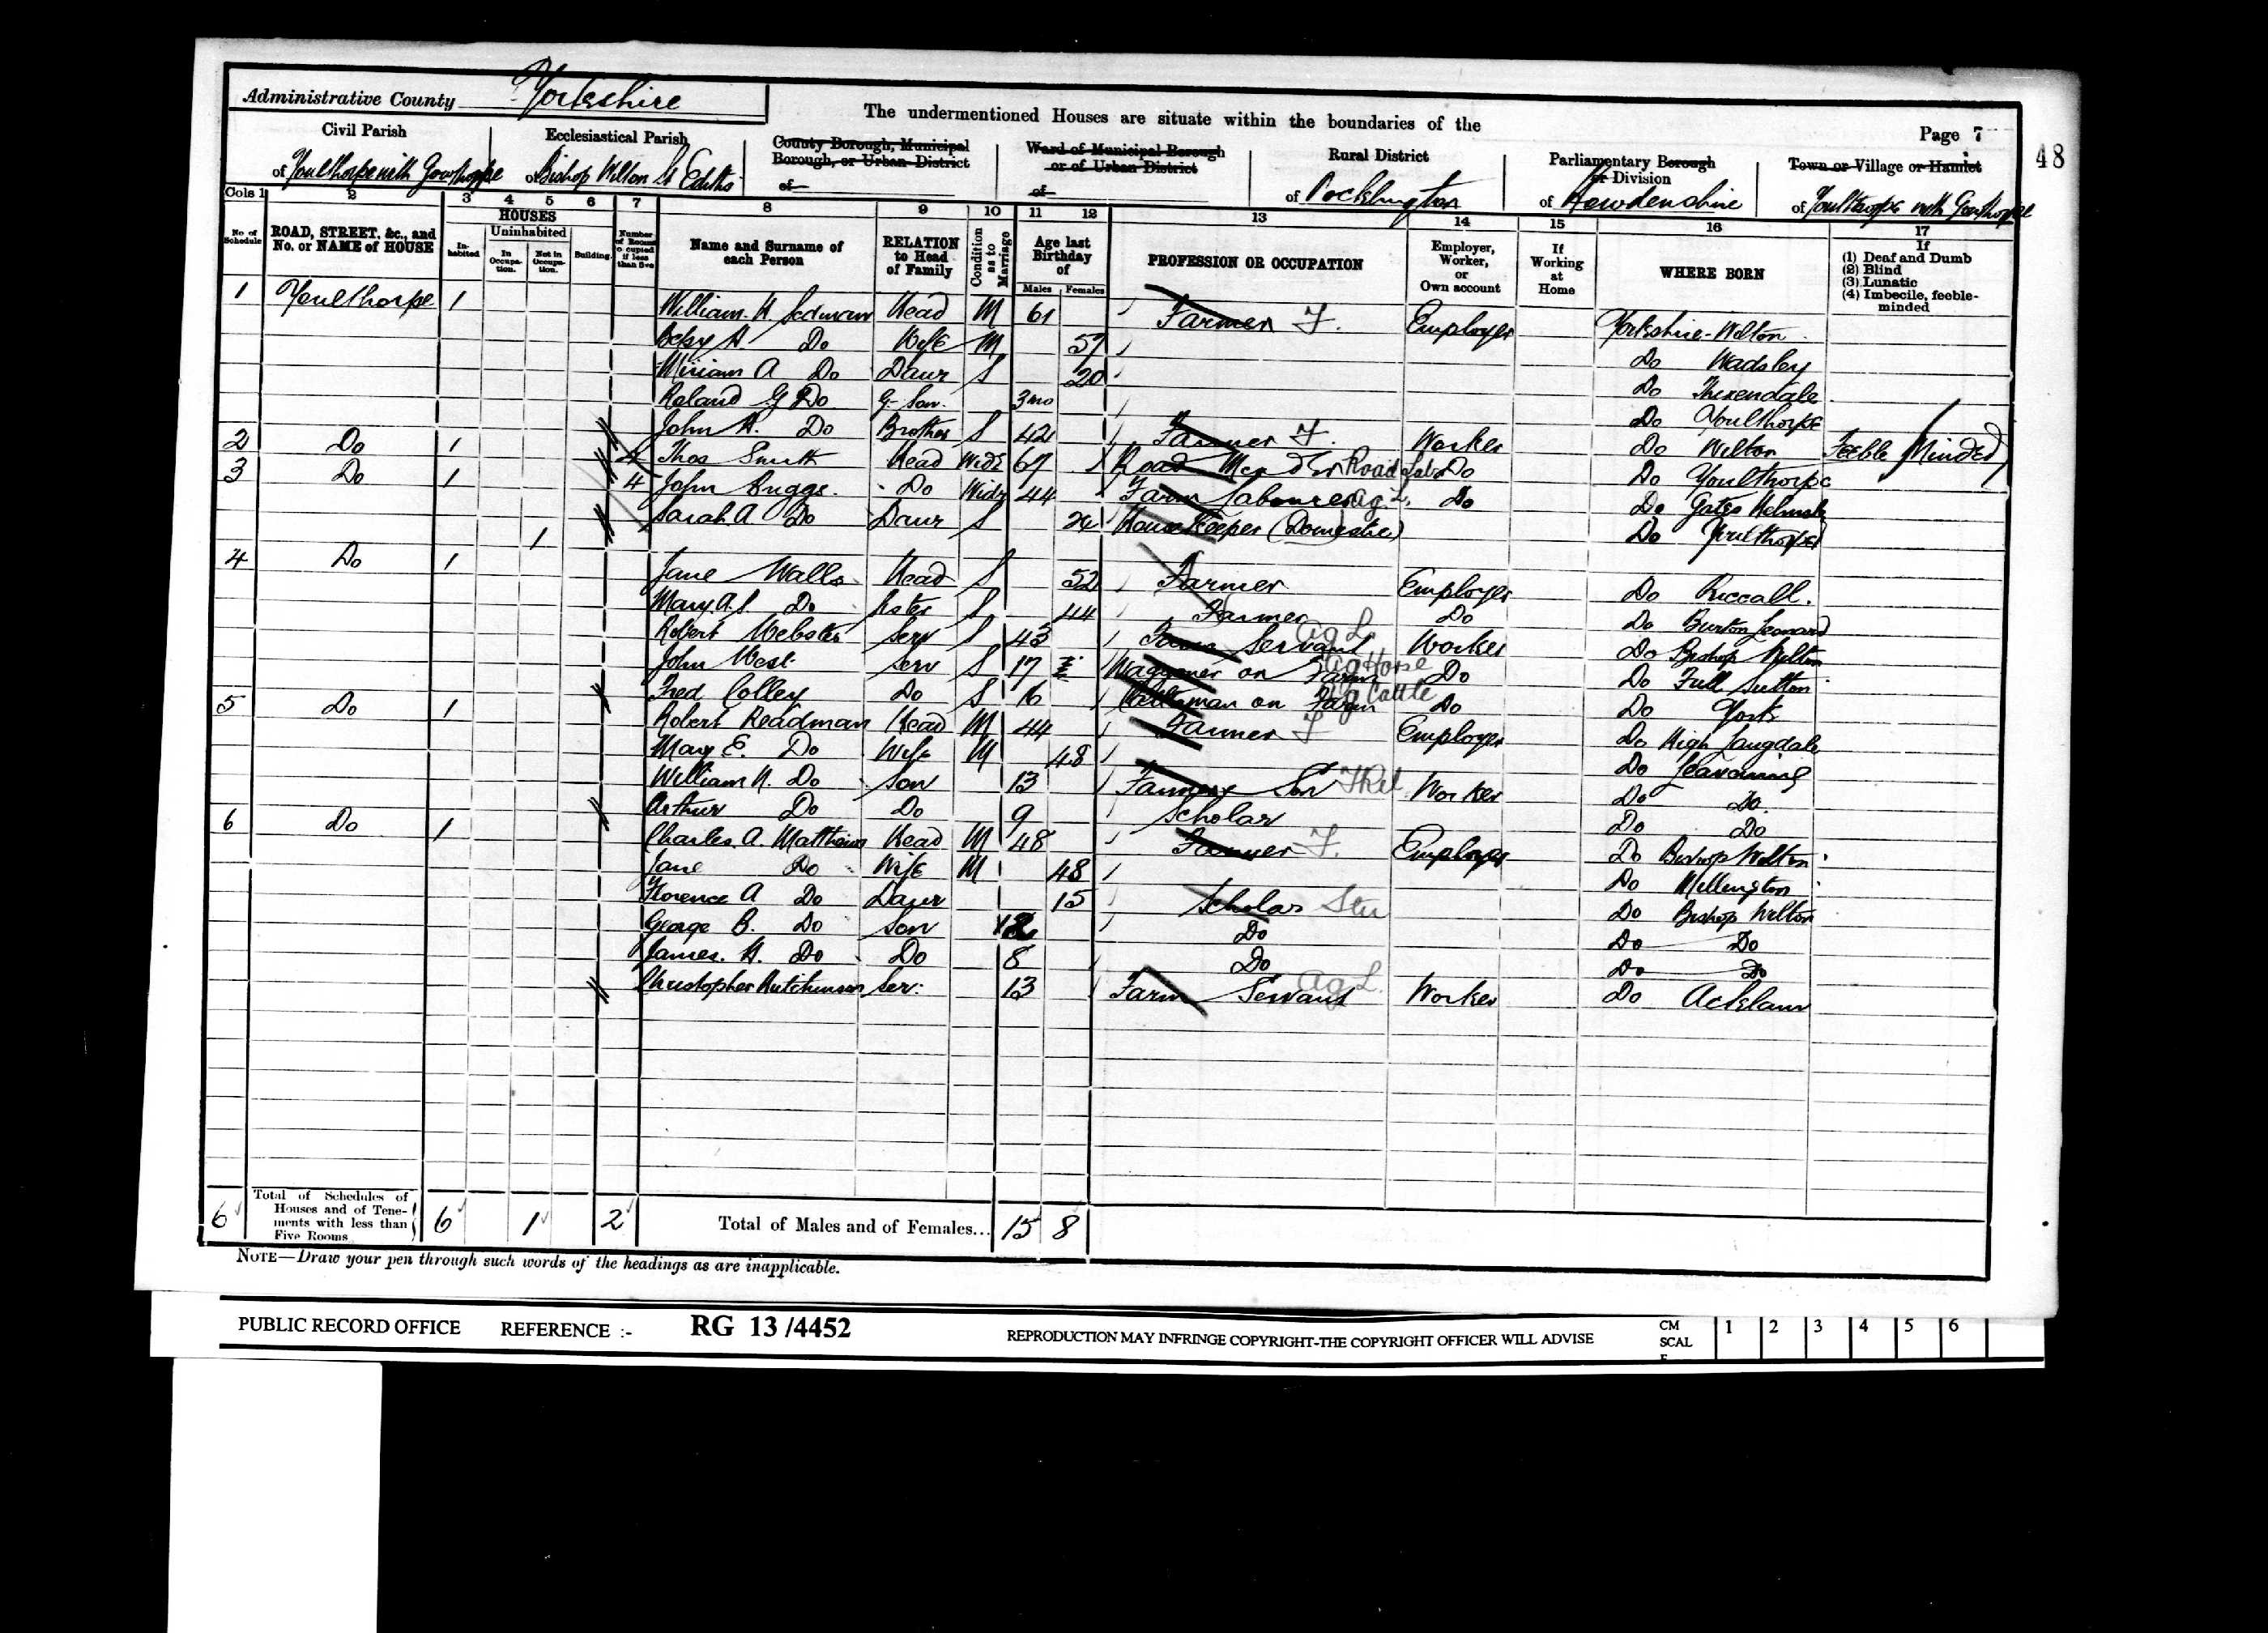 Administrative County Yorkshire
The undermentioned Houses are situate within the boundaries of the
Page 7
48
Civil Parish
of Youlthorpe with Gowthorpe
Ecclesiastical Parish
of Bishop Wilton St Ediths
County Borough, Municipal Borough, or Urban District
of
Ward of Municipal Borough or of Urban District
of
Rural District
of Pocklington
Parliamentary Borough or Division
of Howdenshire
Town or Village or Hamlet
of Youlthorpe with Gowthorpe
Cols 1 2 3 4 5 6 7 8 9 10 11 12 13 14 15 16 17
No. of Schedule
ROAD, STREET, &c., and No. or NAME of HOUSE
HOUSES
Inhabited
Uninhabited
In Occupation.
Not in Occupation.
Building.
Number of Rooms occupied if less than five
Name and Surname of each Person
RELATION to Head of Family
Condition as to Marriage
Age last Birthday of
Males Females
PROFESSION OR OCCUPATION
Employer, Worker, or Own account
If Working at Home
WHERE BORN
If
(1) Deaf and Dumb
(2) Blind
(3) Lunatic
(4) Imbecile, feeble-minded
1 Youlthorpe 1 William. H. Sedman Head M 61 Farmer F. Employer Yorkshire Wilton
Betsy A Do Wife M 57 Do Wadsley
Miriam A Do Daur S 20 Do Thixendale
Roland G Do G-Son. 3 mo Do Youlthorpe
John H. Do Brother S 42 Farmer F. Worker Do Wilton Feeble Minded
2 Do 1 4 Thos Smith Head Widr 67 Road Mender Road Lab Do Do Youlthorpe
3 Do 1 4 John Do Widr 44 Farm Labourer Ag. L. Do Do Gates Helmsley
Sarah A Do Daur S Housekeeper (Domestic) Do Youlthorpe
1
4 Do 1 Jane Walls Head S 52 Farmer Employer Do Riccall.
Mary. A. S. Do Sister S 44 Farmer Do Do Burton Leonard
Robert Webster Serv S 43 Farm Servant Ag L Worker Do Bishop Wilton
John West Serv S 17 Waggoner on Farm Ag Horse Do Do Full Sutton
Fred Colley Do S 16 on Farm Ag Cattle Do Do York
5 Do 1 Robert Readman Head M 44 Farmer F Employer Do High
Mary E. Do Wife M 48 Do Leavening
William H. Do Son 13 Farmers Son Worker Do Do
Arthur Do Do 9 Scholar Do Do
6 Do 1 Charles. A. Matthews Head M 48 Farmer F. Employer Do Bishop Wilton
Jane Do Wife M 48 Do Millington
Florence A Do Daur 15 Scholar Stu Do Bishop Wilton
George B. Do Son Do Do Do
James. H. Do Do 8 Do Do Do
Christopher Hutchinson Ser: 13 Farm Servant Ag L. Worker Do Acklam
6 Total of Schedules of Houses and of Tenements with less than Five Rooms 6 1 2 Total of Males and of Females... 15 8
NOTE—Draw your pen through such words of the headings as are inapplicable.
PUBLIC RECORD OFFICE REFERENCE :- RG 13 /4452
REPRODUCTION MAY INFRINGE COPYRIGHT-THE COPYRIGHT OFFICER WILL ADVISE
CM SCAL E 1 2 3 4 5 6